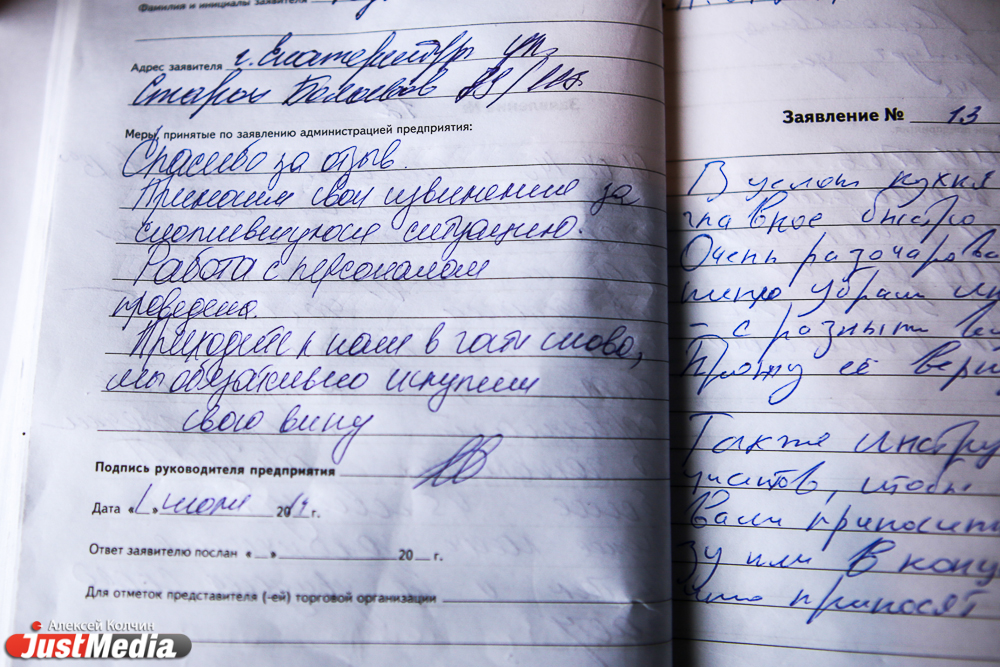 Фамилия и инициалы заявителя
Адрес заявителя г. Екатеринбург ул.
Старых Большевов
Меры, принятые по заявлению администрацией предприятия:
Спасибо за отзыв.
Приносим свои извинения за
сложившуюся ситуацию.
Работа с персоналом
проведена.
Приходите к нам в гости снова,
мы обязательно искупим
свою вину
Подпись руководителя предприятия
Дата « 1 » июля 2014 г.
Ответ заявителю послан « » 20 г.
Для отметок представителя (-ей) торговой организации
Заявление № 13
кухня
главное быстро
Очень разочарова
убрали
- с разными
Прошу её верн
Также
чтобы
Вам приносит
зу или в конц
что приносят
Алексей Колчин
JustMedia